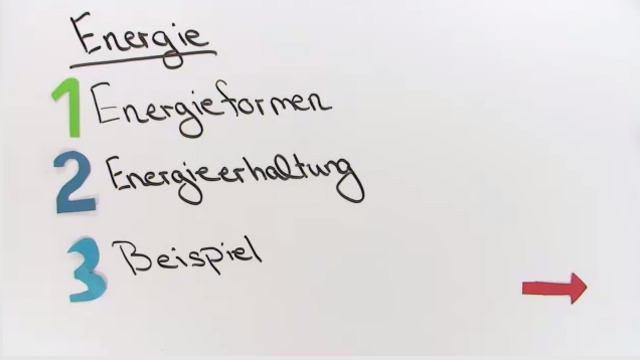 Energie
1 Energieformen
2 Energieerhaltung
3 Beispiel